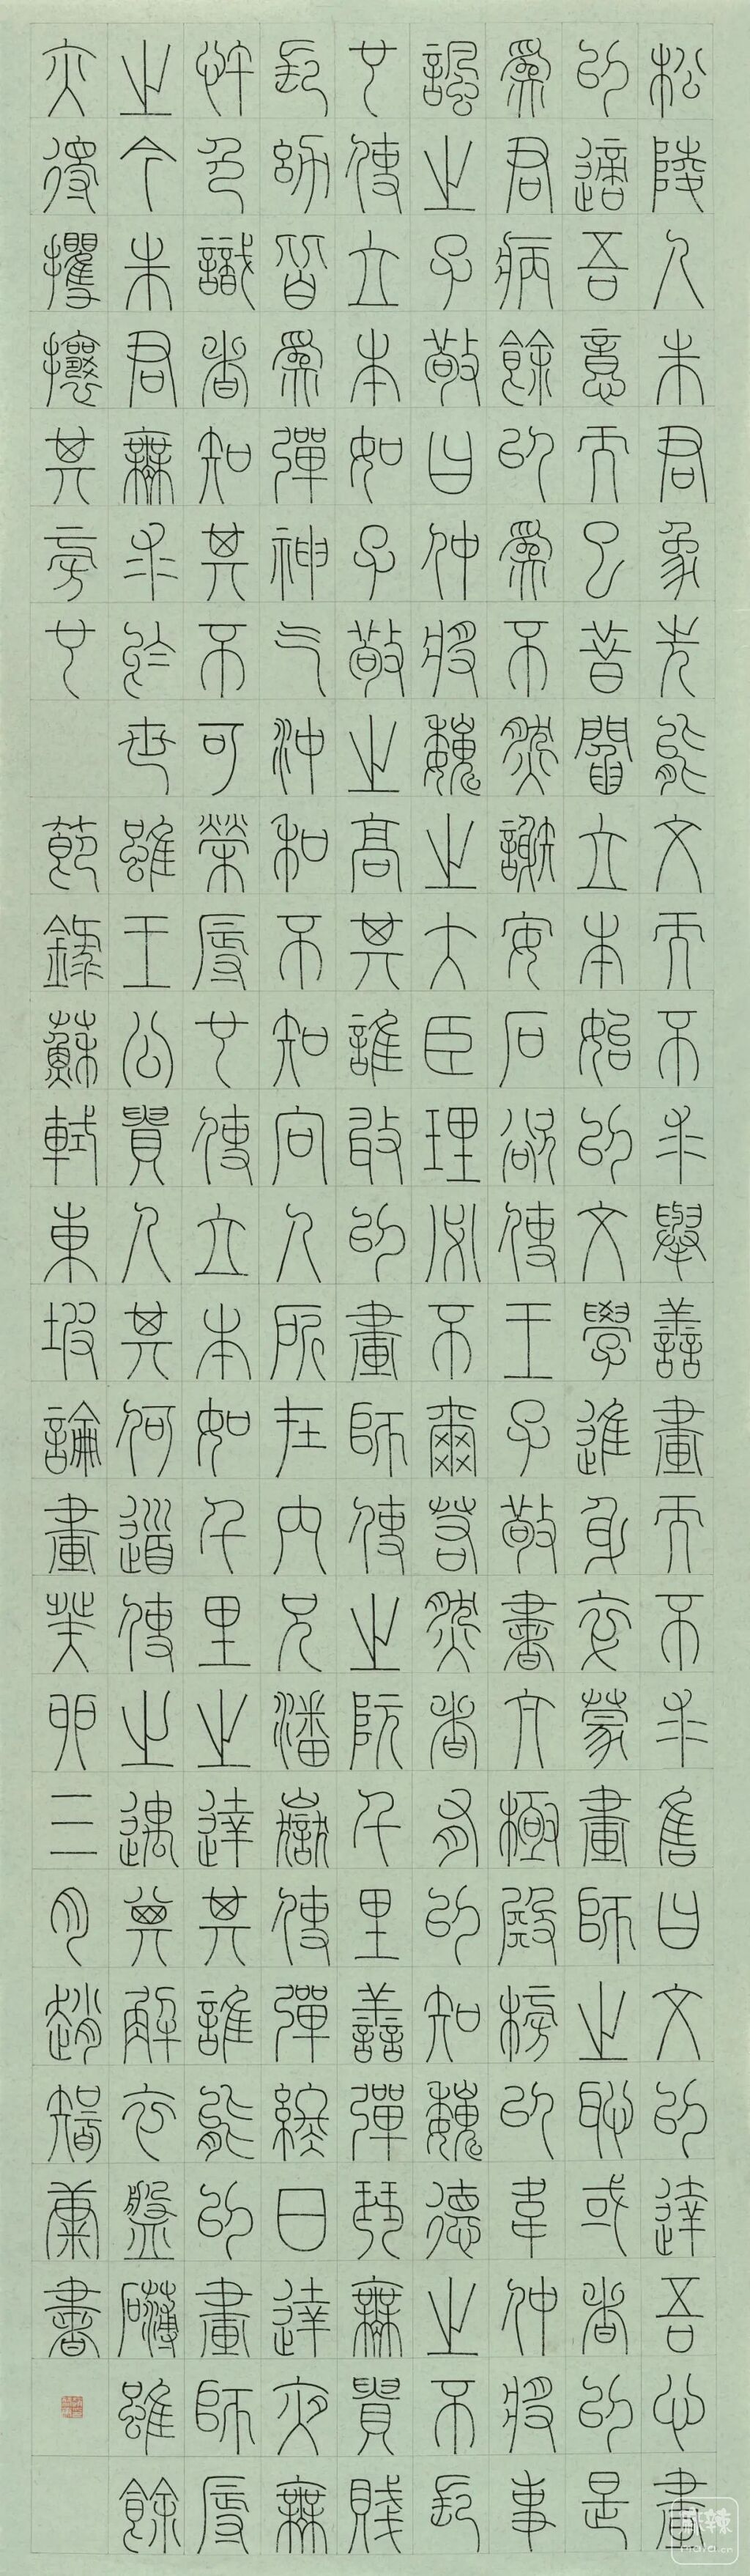 松陵人朱君象先能文而不求舉善畫而不求售曰文以達吾心畫
以適吾意而已昔閻立本始以文學進身卒蒙畫師之恥或者以是
為君病餘以為不然謝安石欲使王子敬書太極殿榜以韋仲將事
諷之子敬曰仲將魏之大臣理必不爾若然者有以知魏德之不長
也使立本如子敬之高其誰敢以畫師使之阮千里善彈琴無貴賤
長幼皆為彈神氣沖和不知向人所在內兄潘嶽使彈終日達夜無
忤色識者知其不可榮辱也使立本如千里之達其誰能以畫師辱
之今朱君無求於世雖王公貴人其何道使之遇其解衣盤礴雖餘
亦得攫攘其旁也 節錄蘇軾東坡論畫癸卯三月趙智書